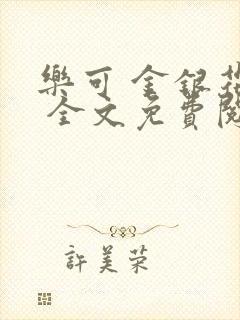 樂可 金銀花
全文免費閱
許美荣